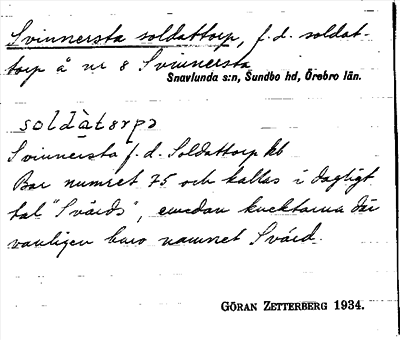 Svinnersta soldattorp, f. d. soldat-
torp å nr 8 Svinnersta
Snavlunda s:n, Sundbo hd, Örebro län.
soldàtɘrpɘ
Svinnersta f. d. Soldattorp kb
Bar numret 75 och kallas i dagligt
tal "Svärds", emedan knektarna där
vanligen buro namnet Svärd.
GÖRAN ZETTERBERG 1934.